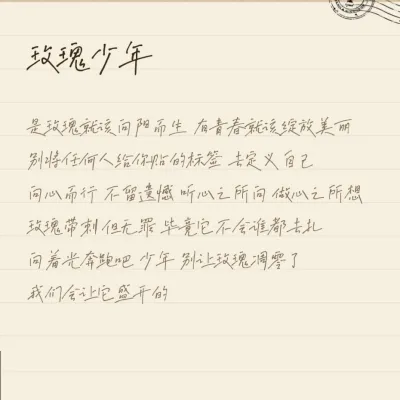 玫瑰少年
是玫瑰就该向阳而生 有青春就该绽放美丽
别将任何人给你贴的标签 去定义自己
向心而行 不留遗憾 听心之所向 做心之所想
玫瑰带刺 但无罪 毕竟它不会谁都去扎
向着光奔跑吧 少年 别让玫瑰凋零了
我们会让它盛开的